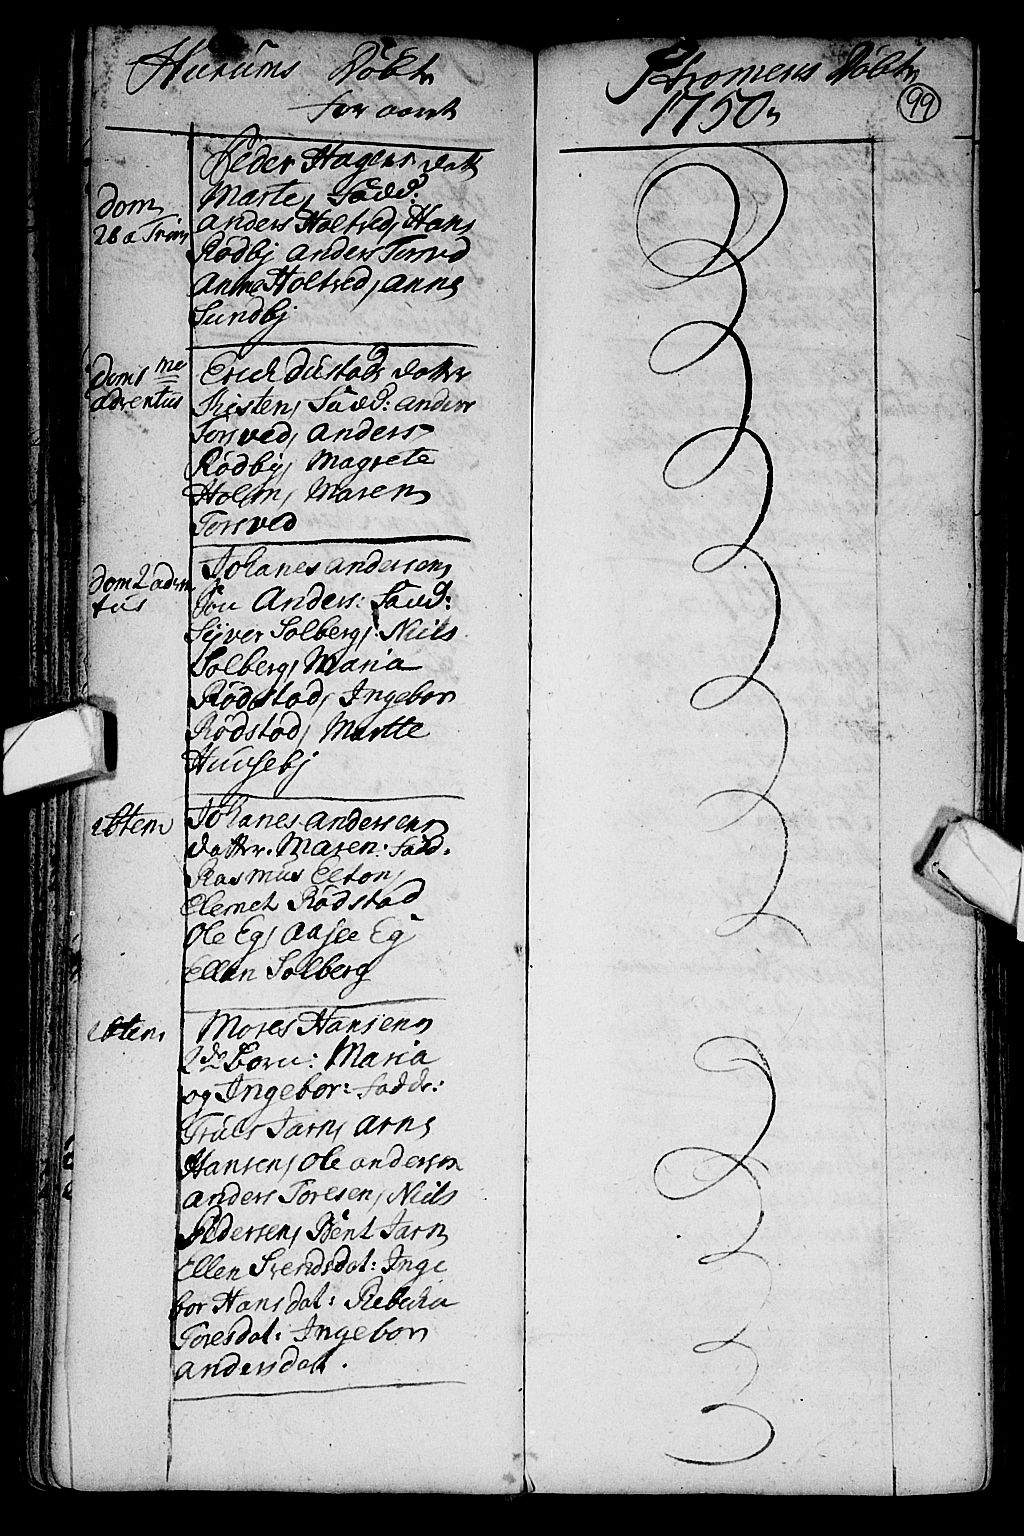 Hurums Döbte
for aaret
Strømens Döbte
1750
99
Peder Hagens datt
Dom
Marte, Fadd:
26 a Trin
anders Holtved, Hans
Rödbÿ anders Torsved
Anna Holtved, anne
Sundbÿ
Dom 1 me
adventus
Erich Dustads datter
Kisten, Fadd: anders
Torsved, anders
Rödbÿ, Magrete
Holm, Maren
Torsved
Dom 2 adven
tus
Johanes andersens
Sön Anders: Fadd:
Syver Solberg, Niels
Solberg, Maria
Rödstad, Ingebor
Rödstad, Martte
Huusebÿ
ibtem
Johanes anderssens
datter. Maren: Fadd.
Rasmus Elton,
Clemet Rödstad
Ole Eg, Aasee Eg
Ellen Solberg
ibtem
Moses Hansens
2de Börn: Maria
og Ingebor: Fadder:
Truls Jarn, arne
Hansen, Ole andersen
anders Toresen, Niels
Pedersen, Bent Jarn
Ellen Svendsdat: Inge
bor Hansdat: Rebecka
Toresdat: Ingebor
andersdat.